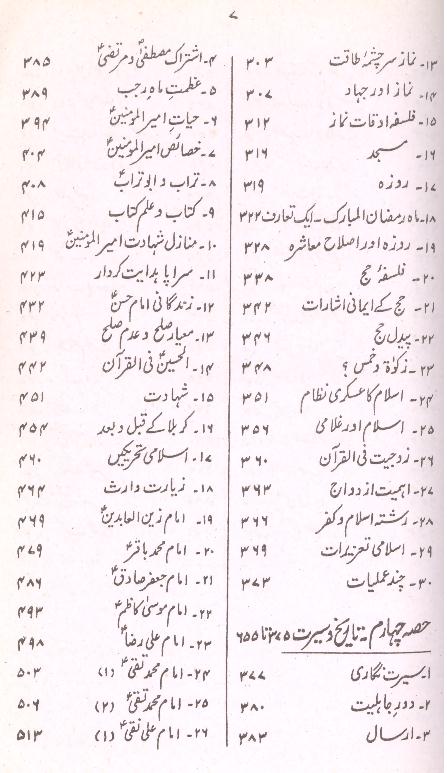 ۷
۱۳۔ نماز سرچشمۂ طاقت ۳۰۳
۱۴۔ نماز اور جہاد ۳۰۷
۱۵۔ فلسفۂ اوقات نماز ۳۱۲
۱۶۔ مسجد ۳۱۶
۱۷۔ روزہ ۳۱۹
۱۸۔ ماہ رمضان المبارک۔ ایک تعارف ۳۲۲
۱۹۔ روزہ اور اصلاح معاشرہ ۳۲۸
۲۰۔ فلسفۂ حج ۳۳۸
۲۱۔ حج کے ایمانی اشارات ۳۴۲
۲۲۔ پیدل حج ۳۴۶
۲۳۔ زکوٰۃ و خمس؟ ۳۴۸
۲۴۔ اسلام کا عسکری نظام ۳۵۱
۲۵۔ اسلام اور غلامی ۳۵۶
۲۶۔ زوجیت فی القرآن ۳۶۰
۲۷۔ اہمیت ازدواج ۳۶۳
۲۸۔ رشتۂ اسلام و کفر ۳۶۶
۲۹۔ اسلامی تعزیرات ۳۶۹
۳۰۔ چند عملیات ۳۷۳
حصہ چہارم۔ تاریخ و سیرت ۳۷۵ تا ۶۵۵
۱۔ سیرت نگاری ۳۷۷
۲۔ دور جاہلیت ۳۸۰
۳۔ ارسال ۳۸۳
۴۔ اشتراک مصطفیٰؐ و مرتضیٰؑ ۳۸۵
۵۔ عظمت ماہ رجب ۳۸۹
۶۔ حیات امیر المومنینؑ ۳۹۴
۷۔ خصائص امیر المومنینؑ ۴۰۴
۸۔ تراب و ابو ترابؑ ۴۰۸
۹۔ کتاب و علم کتاب ۴۱۵
۱۰۔ منازل شہادت امیر المومنینؑ ۴۱۹
۱۱۔ سراپا ہدایت کردار ۴۲۳
۱۲۔ زندگانی امام حسنؑ ۴۳۲
۱۳۔ معیار صلح و عدم صلح ۴۳۹
۱۴۔ الحسینؑ فی القرآن ۴۴۲
۱۵۔ شہادت ۴۵۱
۱۶۔ کربلا کے قبل و بعد ۴۵۴
۱۷۔ اسلامی تحریکیں ۴۶۰
۱۸۔ زیارت وارث ۴۶۴
۱۹۔ امام زین العابدینؑ ۴۶۹
۲۰۔ امام محمد باقرؑ ۴۷۹
۲۱۔ امام جعفر صادقؑ ۴۸۶
۲۲۔ امام موسیٰ کاظمؑ ۴۹۳
۲۳۔ امام علی رضاؑ ۴۹۸
۲۴۔ امام محمد تقیؑ (۱) ۵۰۳
۲۵۔ امام محمد تقیؑ (۲) ۵۰۶
۲۶۔ امام علی نقیؑ (۱) ۵۱۳